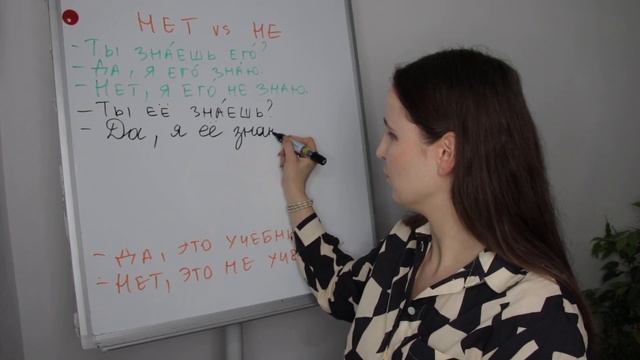 НЕТ vs НЕ
- ТЫ ЗНА́ЕШЬ ЕГО́?
- ДА, Я ЕГО́ ЗНА́Ю.
- НЕТ, Я ЕГО́ НЕ ЗНАЮ.
- ТЫ ЕЁ ЗНА́ЕШЬ?
- Да, я её
- ДА, ЭТО
- НЕТ, ЭТО НЕ